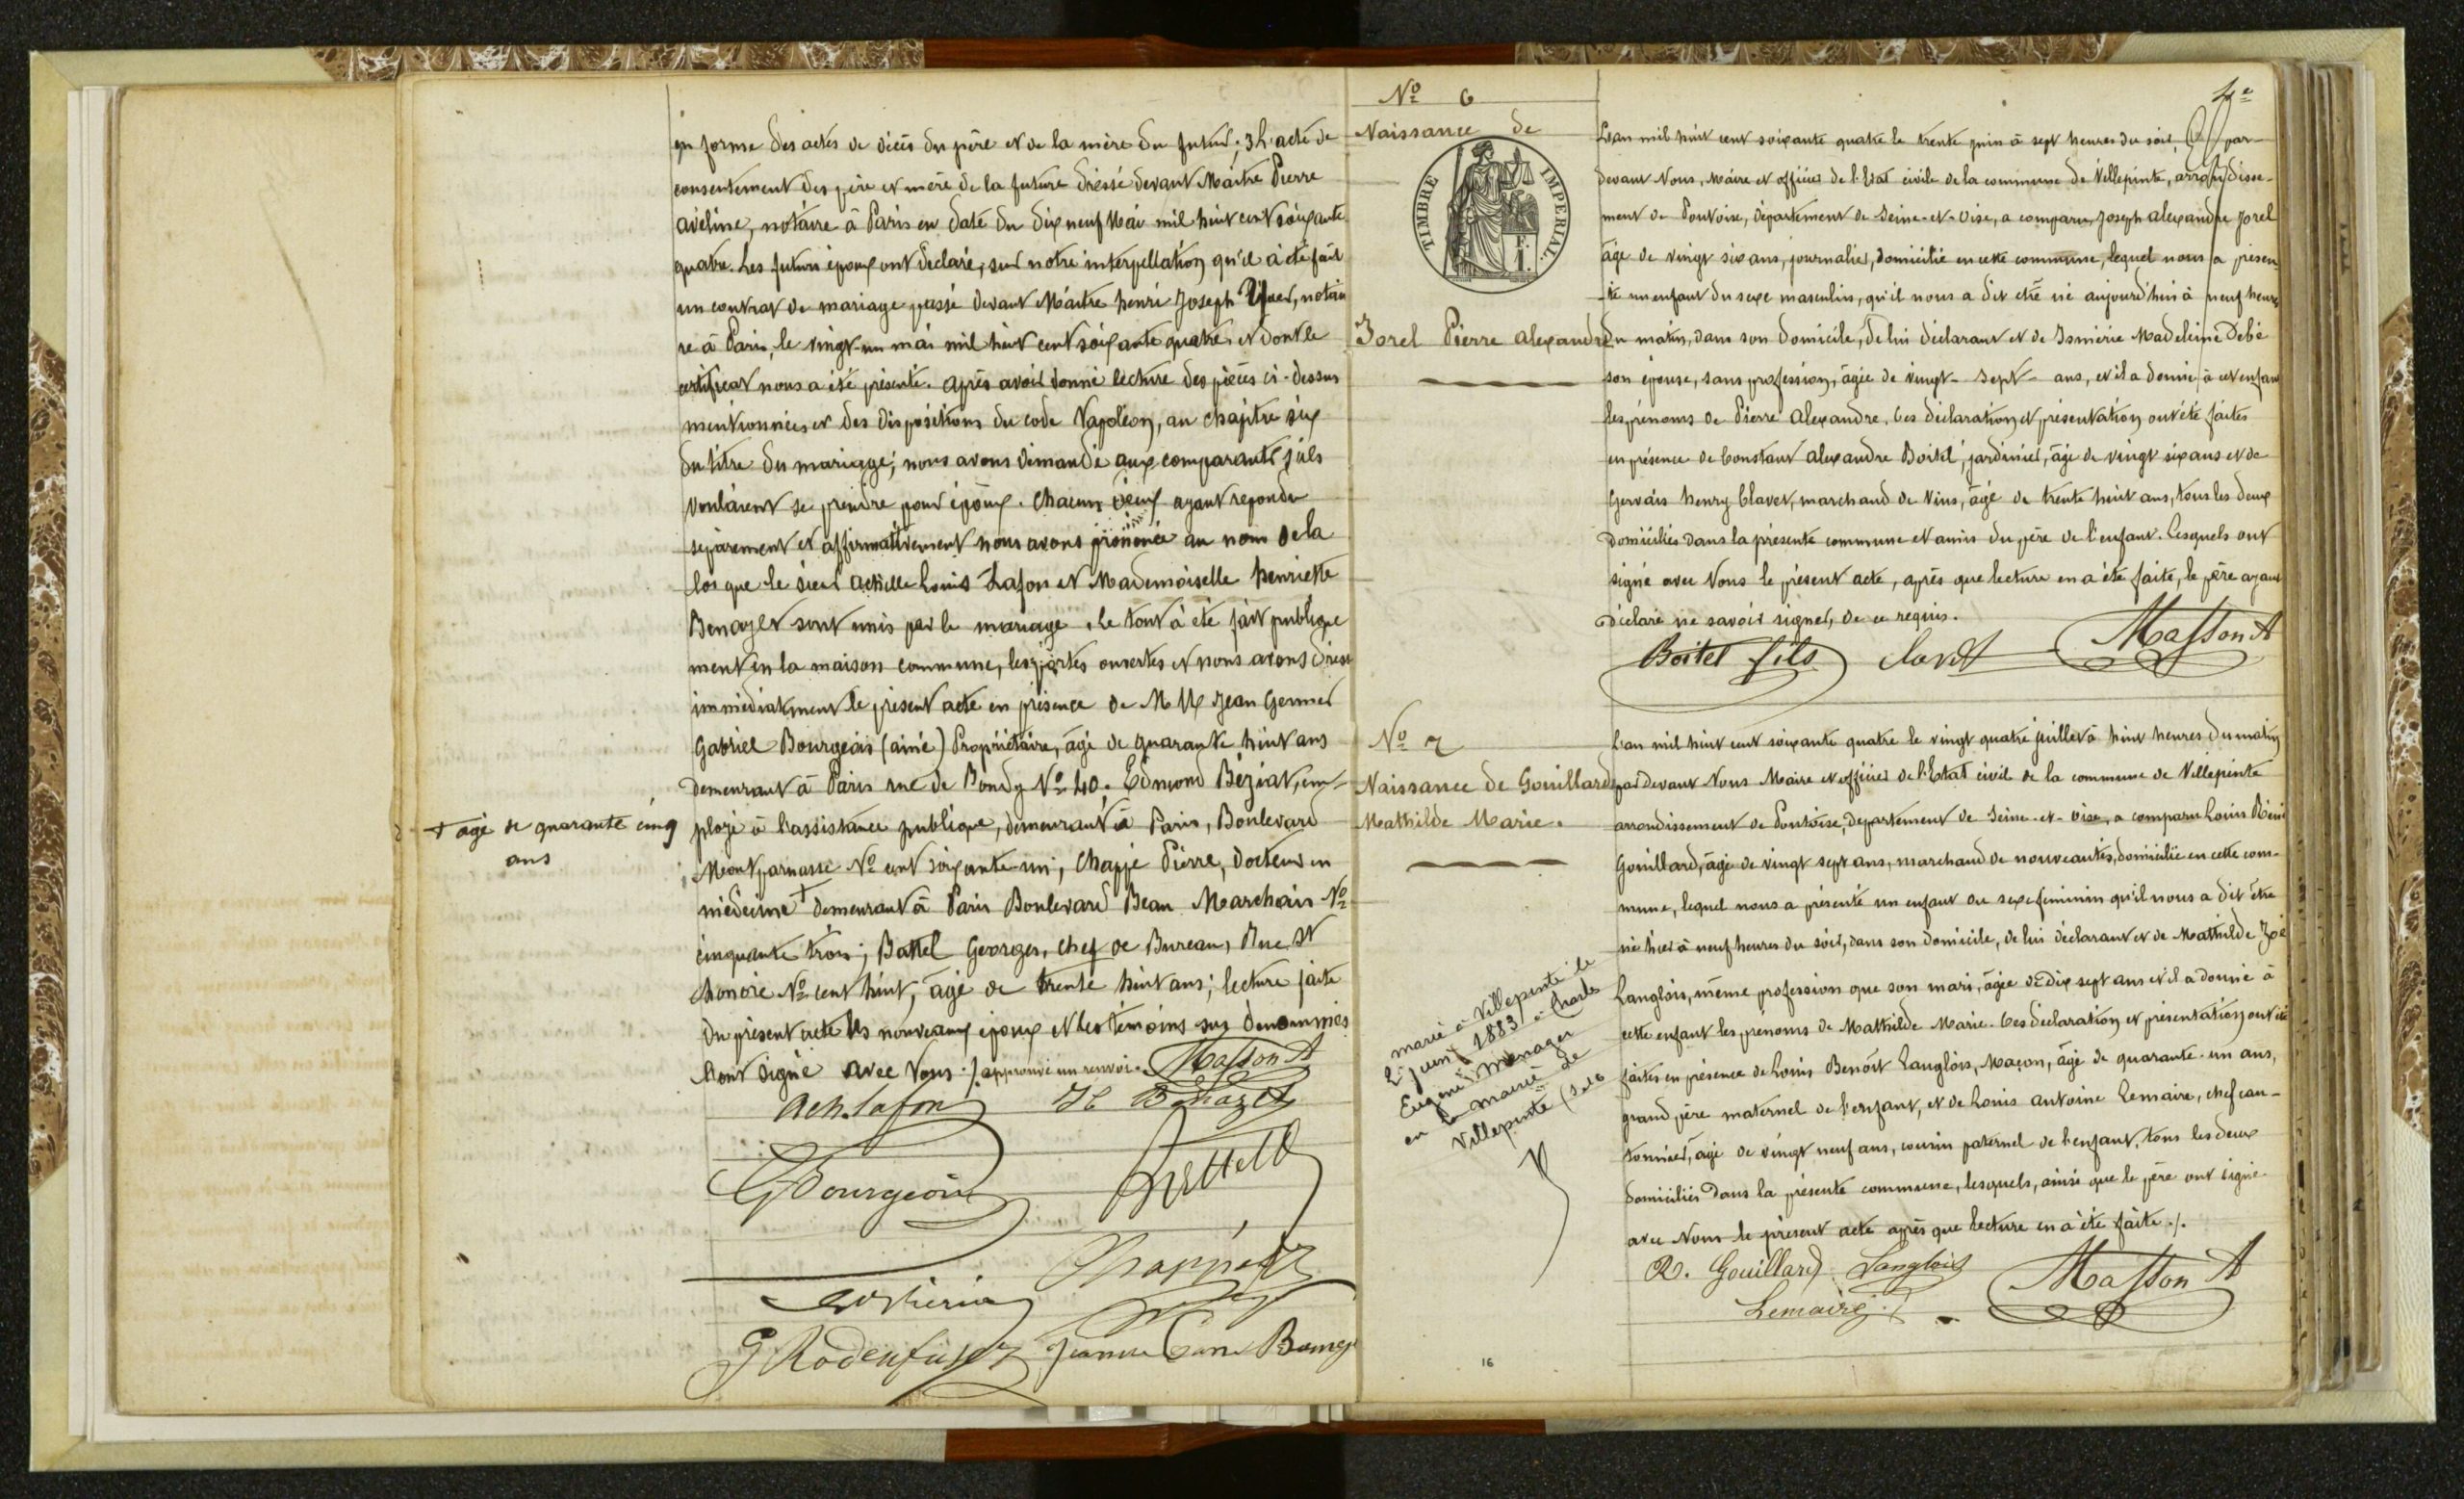 en forme des actes de décès du père et de la mère du futur; 3 L'acte de
consentement des père et mère de la future dressé devant Maître Pierre
aveline, notaire à Paris en date du dix neuf Mai mil huit cent soixante
quatre. Les futurs époux ont déclaré, sur notre interpellation qu'il à été fait
un contrat de mariage passé devant Maître henri Joseph notai
re à Paris, le vingt-un mai mil huit cent soixante quatre, et dont le
certificat nous a été présenté. après avoir donné lecture des pièces ci-dessus
mentionnées et des dispositions du code Napoléon, au chapitre six
du titre du mariage; nous avons demandé aux comparants s'ils
voulaient se prendre pour époux. Chacun d'eux ayant repondu
séparement et affirmativement nous avons prononcé au nom de la
loi que le sieur achille Louis Lafon et Mademoiselle henriette
Benazet sont unis par le mariage. Le tout à été fait publique
ment en la maison commune, les portes ouvertes et nous avons dressé
immédiatement le présent acte en présence de M Mrs Jean Germer
Gabriel Bourgeois (ainé) Propriétaire, âgé de quarante huit ans
demeurant à Paris rue de Bondy No 40. Edmond Béziat, em-
ployé à l'assistance publique, demeurant à Paris, Boulevard
Montparnasse No cent soixante-un; Chappé Pierre, docteur en
médecine + demeurant à Paris Boulevard Beau Marchais No
cinquante trois; Battel Georges, chef de Bureau, Rue St
honoré No cent huit, âgé de trente huit ans; lecture faite
du présent acte les nouveaux époux et les témoins sus dénommés
l'ont signé avec Nous ./. approuvé un renvoi. Masson A
+ agé de quarante cinq
ans
Ach. Lafon H Benazet
G Bourgeois Battel
Chappé
G Rodenfuser Jeanne
No 6
Naissance de
TIMBRE IMPERIAL
Jorel Pierre alexandre
4e
L'an mil huit cent soixante quatre le trente juin à sept heures du soir, par-
devant Nous, Maire et officier de l'Etat civile de la commune de Villepinte, arrondisse-
ment de Pontoise, département de Seine-et-Oise, a comparu Joseph alexandre Jorel
âgé de vingt six ans, journalier, domicilié en cette commune, lequel nous a présen
-té un enfant du sexe masculin, qu'il nous a dit etré né aujourd'hui à neuf heures
du matin, dans son domicile, de lui déclarant et de Isménie Madeleine Debé
son épouse, sans profession, âgée de vingt-sept-ans, et il a donné à cet enfant
les prénoms de Pierre alexandre. Ces déclaration et présentation ont été faites
en présence de Constant alexandre Boitel, jardinier, âgé de vingt six ans et de
Gervais henry Clavet, marchand de vins, âgé de trente huit ans, tous les deux
domiciliés dans la présente commune et amis du père de l'enfant. Lesquels ont
signé avec Nous le présent acte, après que lecture en a été faite, le père ayant
déclaré ne savoir signer, de ce requis.
Boitel fils Clavet Masson A
No 7
Naissance de Gouillard
Mathilde Marie.
L'an mil huit cent soixante quatre le vingt quatre juillet à huit heures du matin
par devant Nous Maire et officier de l'Etat civil de la commune de Villepinte
arrondissement de Pontoise, département de Seine-et-Oise, a comparu Louis Réné
Gouillard, âgé de vingt sept ans, marchand de nouveautés, domicilié en cette com-
mune, lequel nous a présenté un enfant du sexe feminin qu'il nous a dit être
né hier à neuf heures du soir, dans son domicile, de lui déclarant et de Mathilde Zoé
Langlois, même profession que son mari, âgée de dix sept ans et il a donné à
cette enfant les prénoms de Mathilde Marie. Ces déclaration et présentation ont été
faites en présence de Louis Benoît Langlois, Maçon, âgé de quarante-un ans,
grand père maternel de l'enfant, et de Louis antoine Lemaire, chef can-
tonnier, âgé de vingt neuf ans, cousin paternel de l'enfant, tous les deux
domiciliés dans la présente commune, lesquels, ainsi que le père ont signé
avec Nous le présent acte après que lecture en à été faite ./.
marié à Villepinte le
2 juin 1883 à Charles
Eugène Ménager
en la mairie de
Villepinte
R. Gouillard Langlois Masson A
Lemaire
16